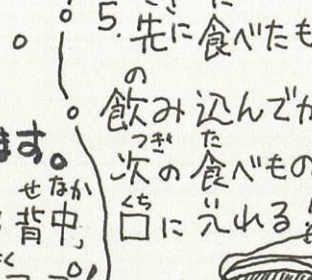 5. 先に食べたも
飲み込んでか
次の食べもの
口に入れる
ます。
背中,